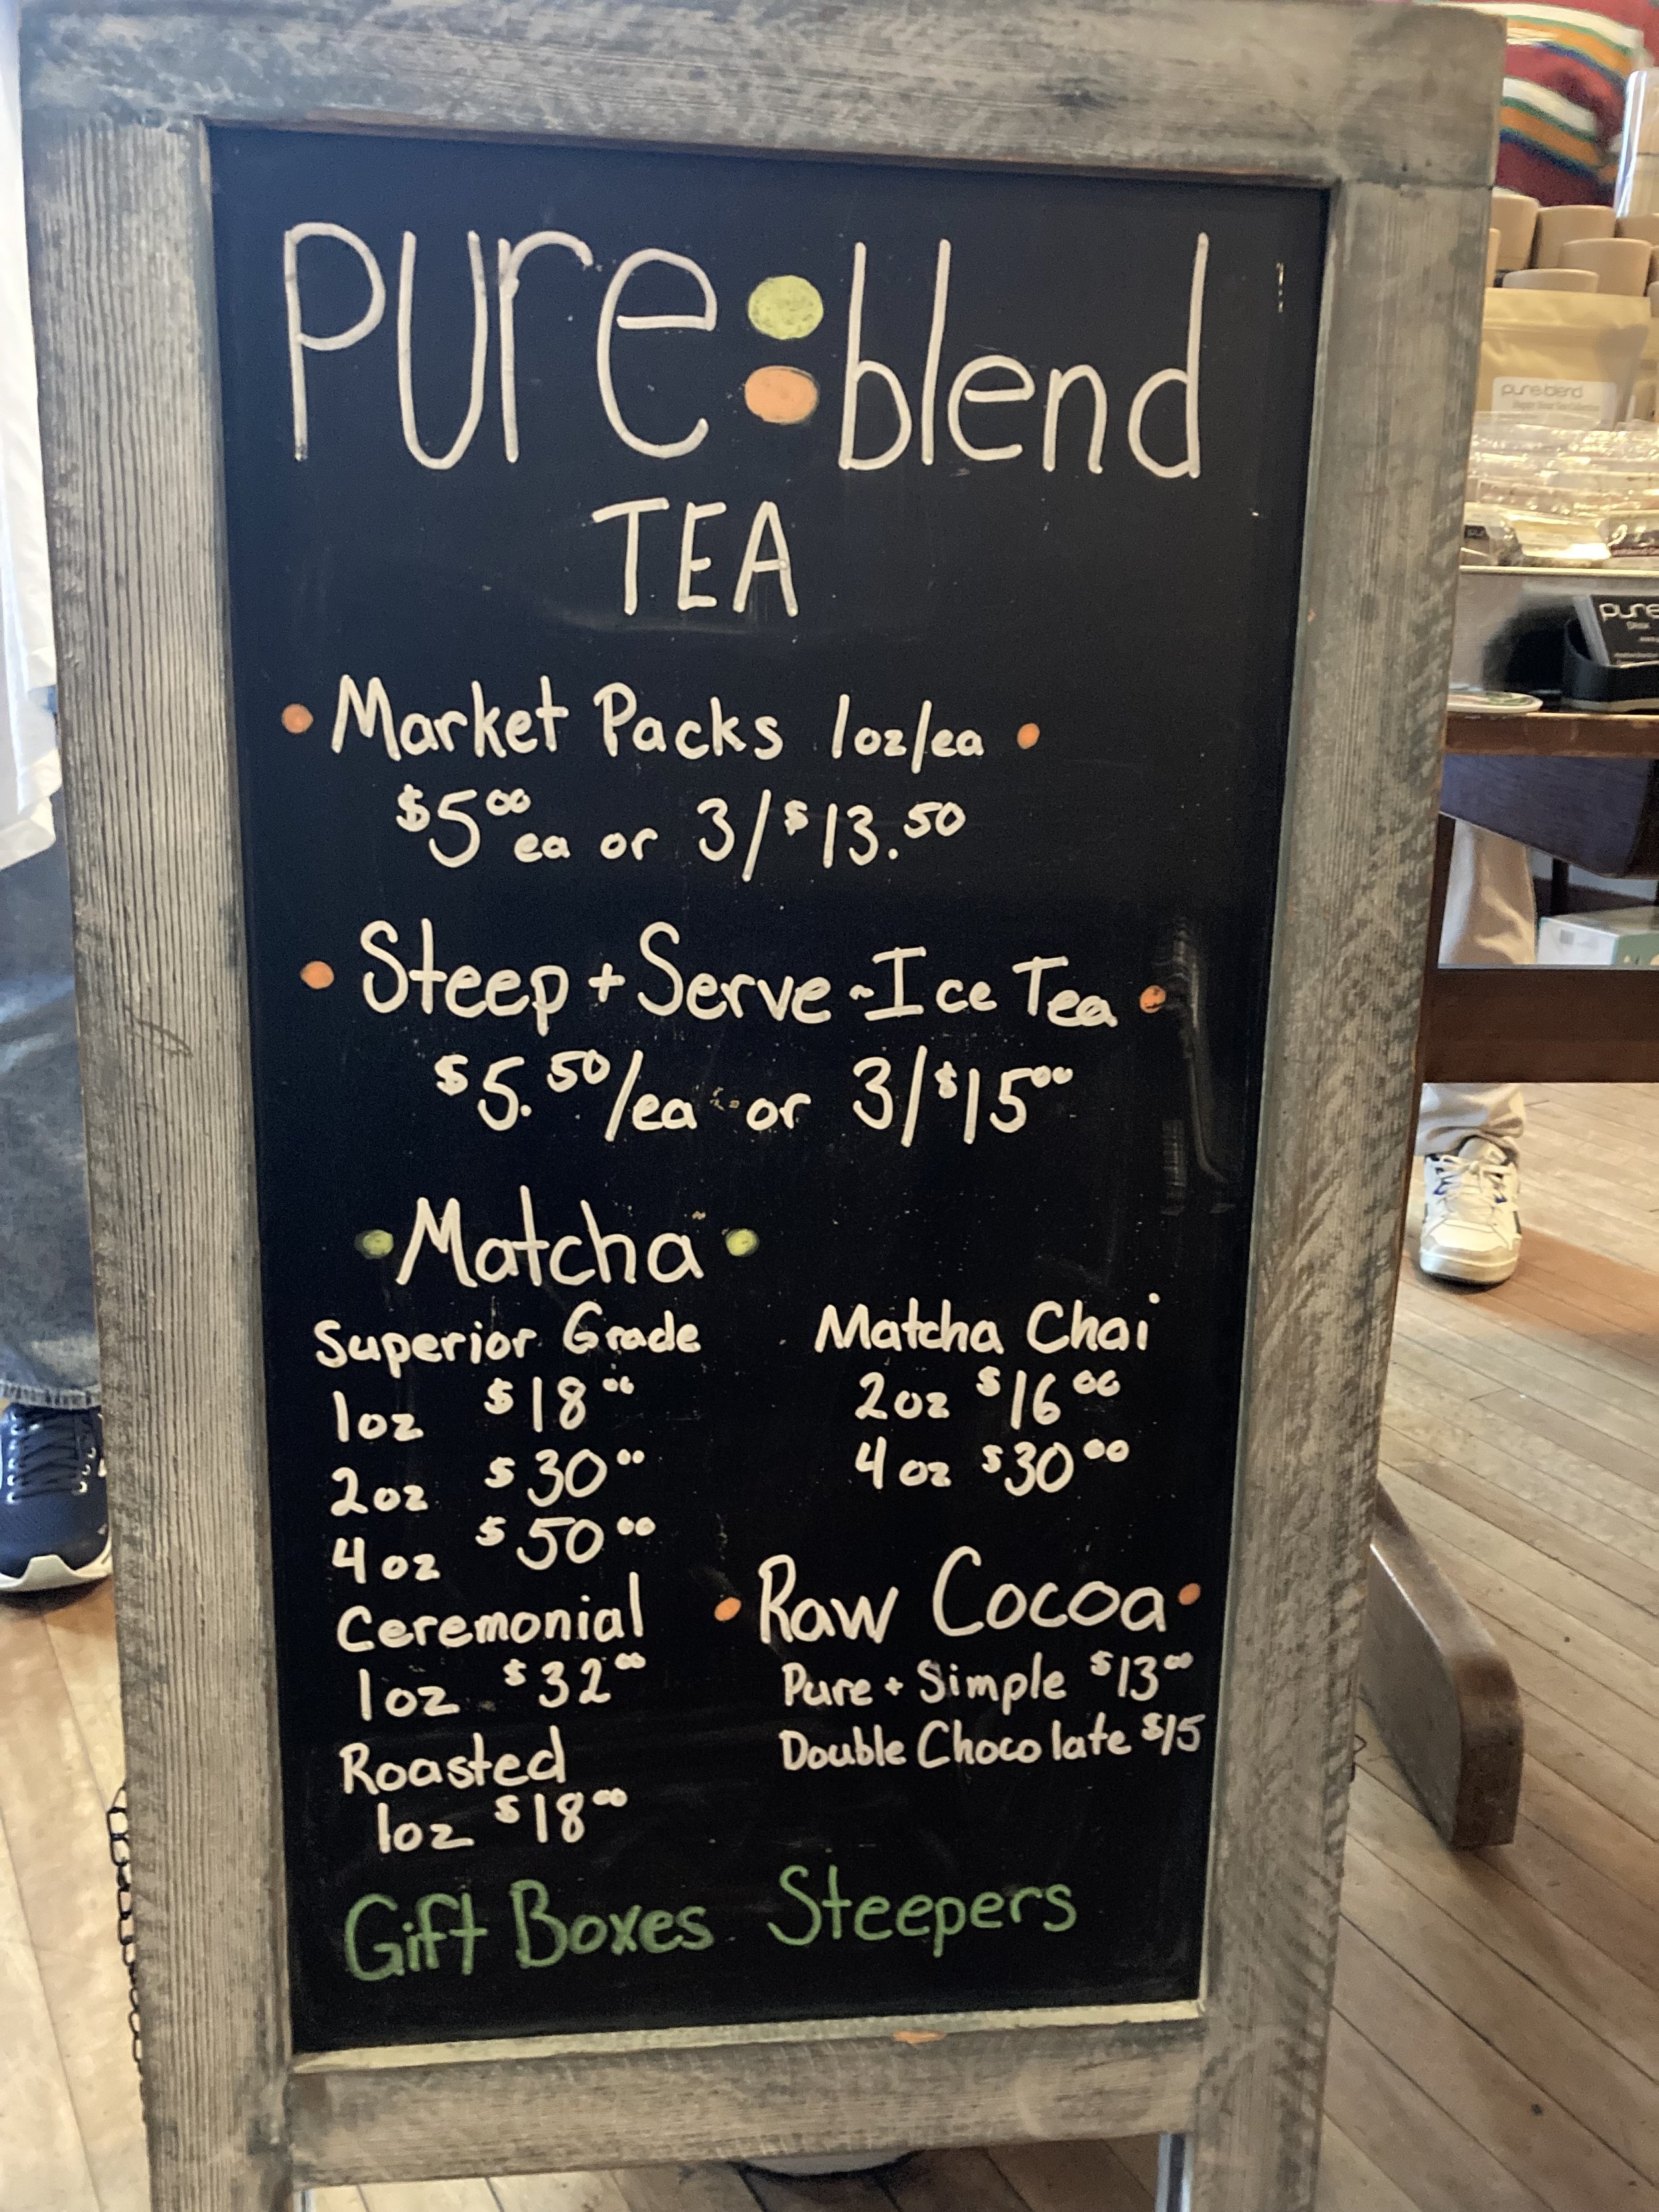 pure:blend
TEA
• Market Packs 1oz/ea •
$5.00 ea or 3/$13.50
• Steep + Serve ~ Ice Tea •
$5.50/ea or 3/$15.00
• Matcha •
Superior Grade
1oz $18.00
2oz $30.00
4oz $50.00
Ceremonial
1oz $32.00
Roasted
1oz $18.00
Matcha Chai
2oz $16.00
4oz $30.00
• Raw Cocoa •
Pure + Simple $13.00
Double Chocolate $15
Gift Boxes Steepers
pure:blend
pure